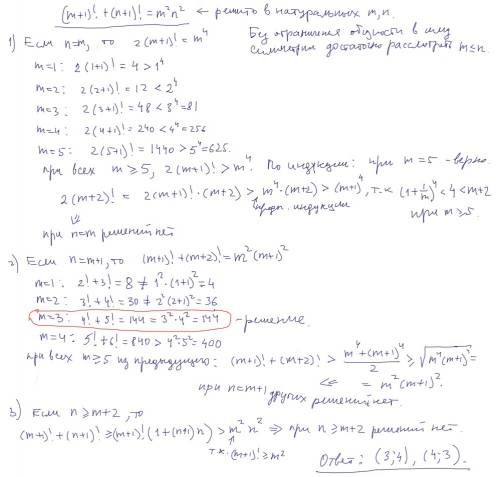 (m+1)! + (n+1)! = m²n² ← решить в натуральных m, n.
Без ограничения общности в силу
симметрии достаточно рассмотреть m≤n.
1) Если n=m, то 2(m+1)! = m⁴
m=1: 2(1+1)! = 4 > 1⁴
m=2: 2(2+1)! = 12 < 2⁴
m=3: 2(3+1)! = 48 < 3⁴ = 81
m=4: 2(4+1)! = 240 < 4⁴ = 256
m=5: 2(5+1)! = 1440 > 5⁴ = 625.
при всех m ≥ 5, 2(m+1)! > m⁴. По индукции: при m=5 - верно.
2(m+2)! = 2(m+1)!·(m+2) > m⁴·(m+2) > (m+1)⁴, т.к. (1+1/m)⁴ < 4 < m+2
⇓ предп. индукции при m≥5.
при n=m решений нет
2) Если n=m+1, то (m+1)! + (m+2)! = m²(m+1)²
m=1: 2! + 3! = 8 ≠ 1²·(1+1)² = 4
m=2: 3! + 4! = 30 ≠ 2²(2+1)² = 36
m=3: 4! + 5! = 144 = 3²·4² = 144 - решение.
m=4: 5! + 6! = 840 > 4²·5² = 400
при всех m≥5 из предыдущего: (m+1)! + (m+2)! > (m⁴+(m+1)⁴)/2 ≥ √(m⁴(m+1)⁴) =
⇐ = m²(m+1)².
при n=m+1 других решений нет.
3) Если n ≥ m+2, то
(m+1)! + (n+1)! ≥ (m+1)! (1+(n+1)n) > m²n² ⇒ при n ≥ m+2 решений нет.
т.к. (m+1)! ≥ m²
Ответ: (3;4), (4;3).